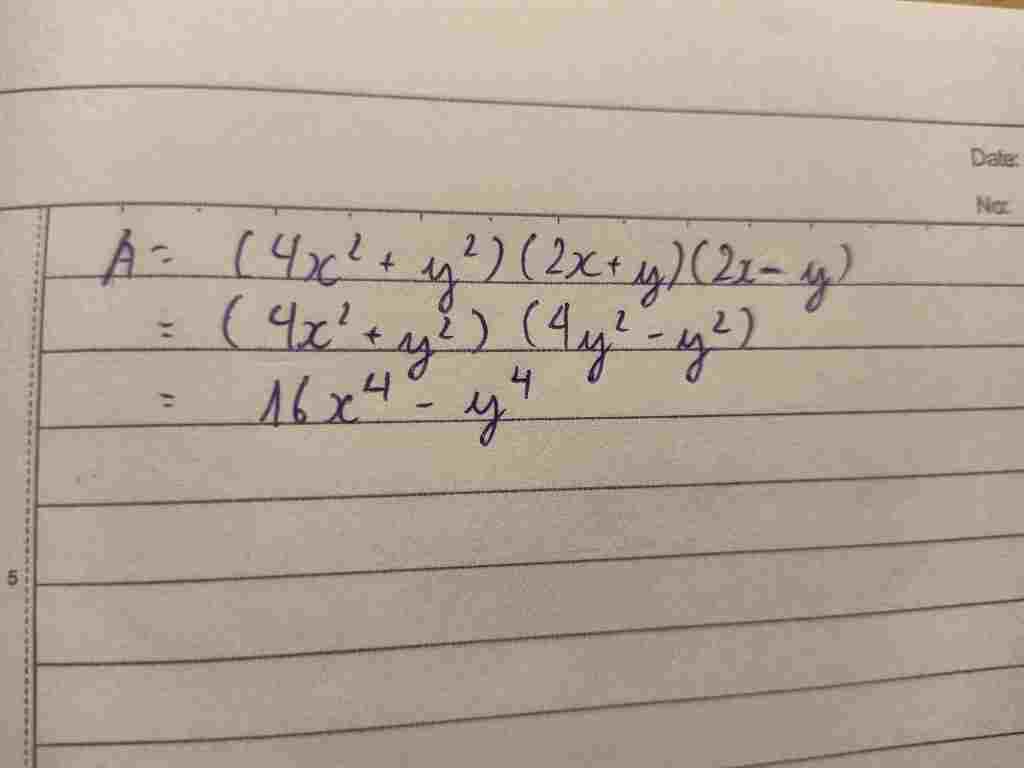 Date:
No:
A = (4x² + y²)(2x + y)(2x - y)
= (4x² + y²) (4y² - y²)
= 16x⁴ - y⁴
5